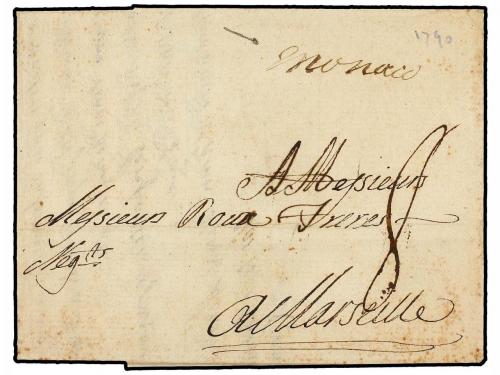 1790
Monaco
A Messieurs
Messieurs Roux Freres
Neg.ts
8
A Marseille